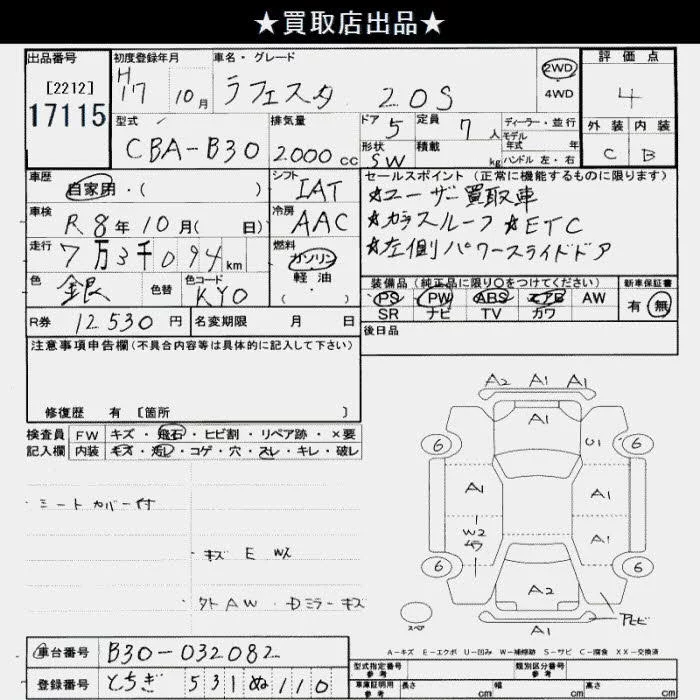 ★買取店出品★
出品番号 初度登録年月 車名・グレード 2WD 評価点
[2212] H17 10月 ラフェスタ 20S 4WD 4
17115 型式 排気量 ドア 定員 ディーラー・並行 外装 内装
CBA-B30 2000cc 5 7人 モデル年式 年
形状 積載 kg ハンドル 左・右 C B
SW
車歴 シフト セールスポイント(正常に機能するものに限ります)
自家用・( ) IAT ★ユーザー買取車
車検 R8年10月( 日) 冷房 AAC ★ガラスルーフ ★ETC
走行 7万3千094km 燃料 ガソリン ★左側パワースライドドア
軽油
( )
色 銀 色替 色コード KY0 装備品(純正品に限り○をつけてください) 新車保証書
PS PW ABS エアB AW 有・無
SR ナビ TV カワ
R券 12530円 名変期限 月 日 後日品
注意事項申告欄(不具合内容等は具体的に記入して下さい)
修復歴 有 [箇所 ]
検査員 FW キズ・飛石・ヒビ割・リペア跡・×要
記入欄 内装 キズ・汚レ・コゲ・穴・スレ・キレ・破レ
・シートカバー付
・キズ E Wス
・タトAW・Dミラーキズ
A2 A1 A1
A1
6 U1 6
A1 A1
W2 A1
6 6
A2
スペア A1
A-キズ E-エクボ U-凹み W-補修跡 S-サビ C-腐食 XX-交換済
車台番号 B30-032082
登録番号 とちぎ 531 ぬ 110
型式指定番号 参考 類別区分番号 参考
車庫証明用 参考 長さ cm 幅 cm 高さ cm